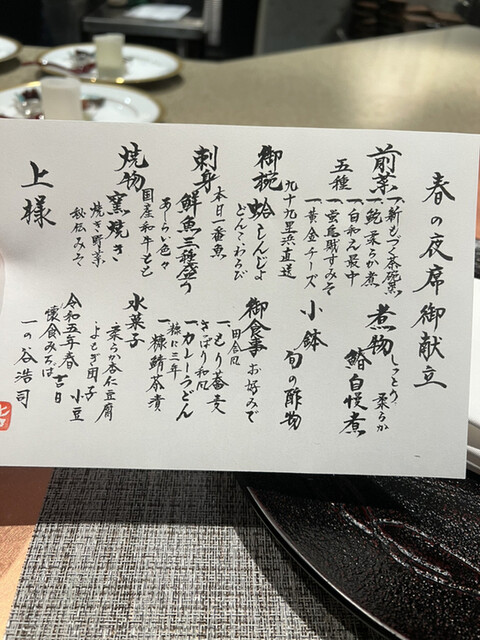 春の夜席御献立
前菜
五種
一 新もづく茶碗蒸
一 鮑柔らか煮
一 白和え最中
一 蛍烏賊すみそ
一 黄金チーズ
御椀
蛤しんじよ
九十九里浜直送
どんこ、わらび
刺身
鮮魚三種盛り
本日一番魚
あしらい色々
焼物
窯焼き
国産和牛もも
焼き野菜
秘伝みそ
上様
煮物
しっとり、柔らか
鰆自慢煮
小鉢
旬の酢物
御食事
お好みで
田舎風
一 もり蕎麦
さっぱり和風
一 カレーうどん
糠に三年
一 糠鯖茶漬
水菓子
柔らか杏仁豆腐
よもぎ団子 小豆
令和五年春 吉日
懐食みちば
一の谷浩司